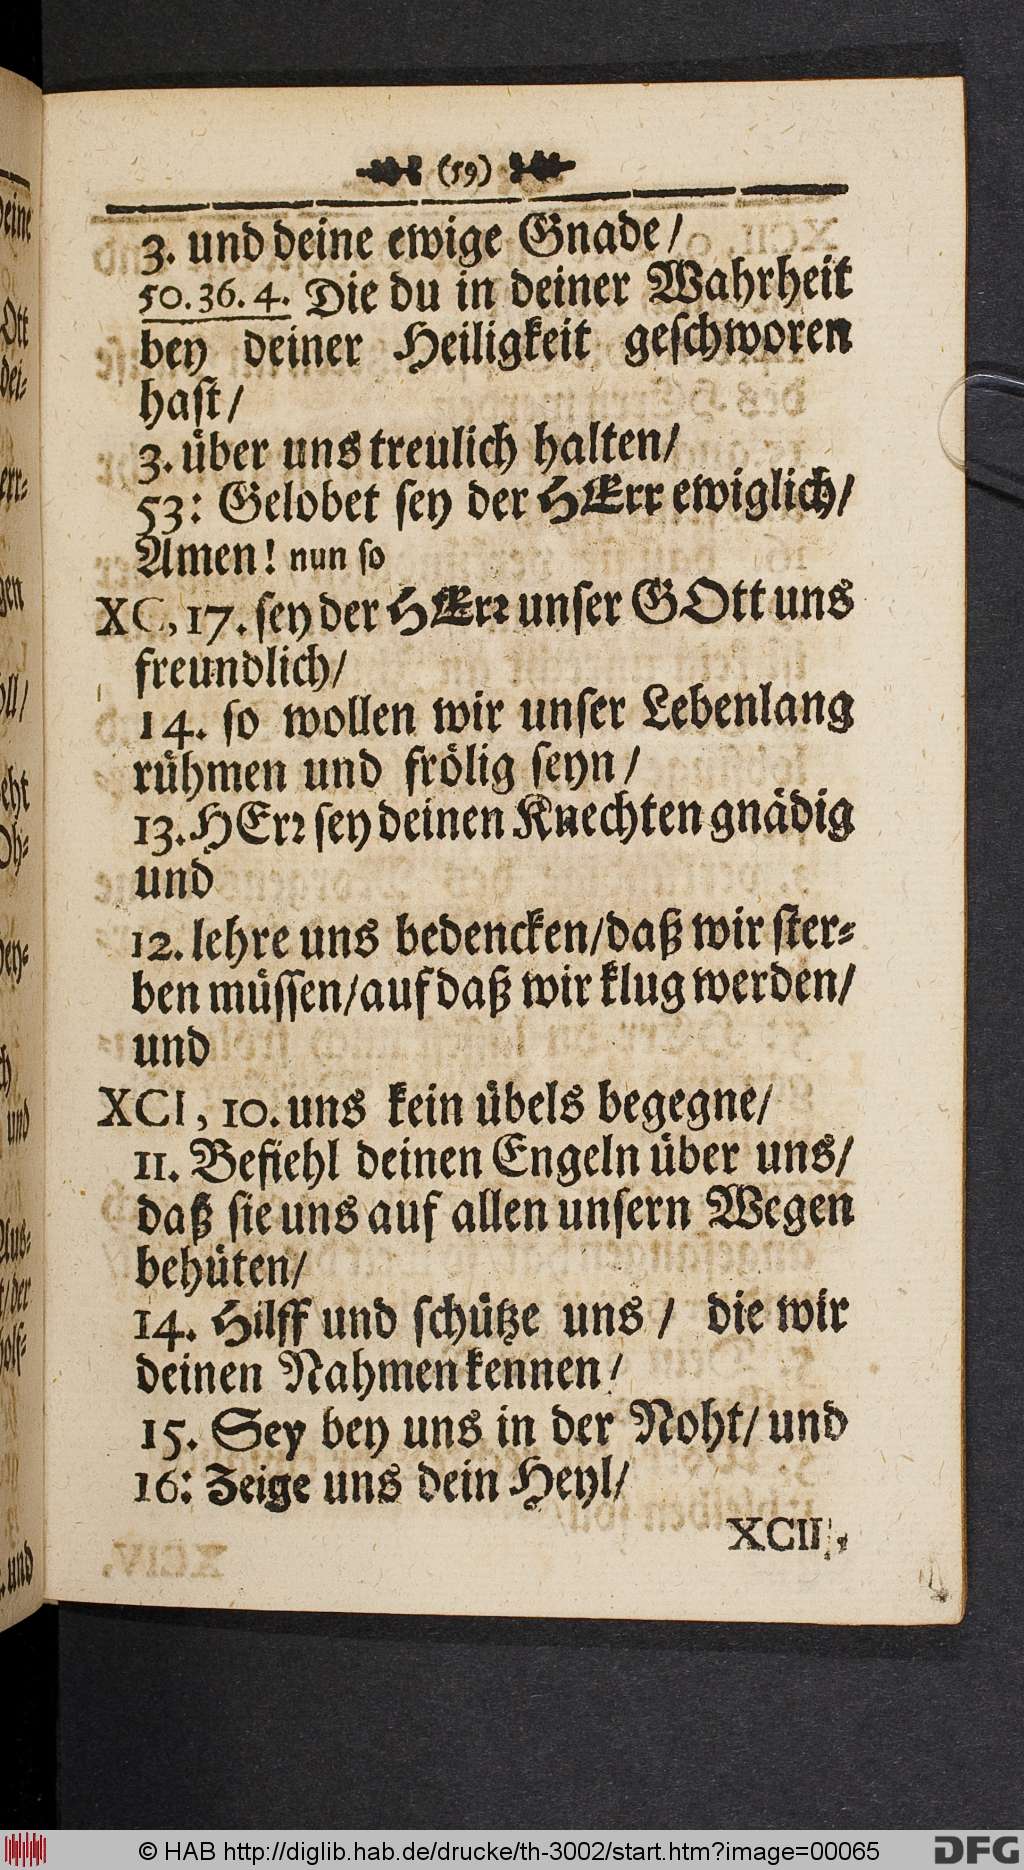 (59)
3. und deine ewige Gnade/
50. 36. 4. Die du in deiner Wahrheit
bey deiner Heiligkeit geschworen
hast/
3. über uns treulich halten/
53: Gelobet sey der HErr ewiglich/
Amen! nun so
XC, 17. sey der HErr unser GOtt uns
freundlich/
14. so wollen wir unser Lebenlang
rühmen und frölig seyn/
13. HErr sey deinen Knechten gnädig
und
12. lehre uns bedencken/daß wir ster-
ben müssen/auf daß wir klug werden/
und
XCI, 10. uns kein übels begegne/
11. Befiehl deinen Engeln über uns/
daß sie uns auf allen unsern Wegen
behüten/
14. Hilff und schütze uns/ die wir
deinen Nahmen kennen/
15. Sey bey uns in der Noht/ und
16: Zeige uns dein Heyl/
XCII,
© HAB http://diglib.hab.de/drucke/th-3002/start.htm?image=00065
DFG